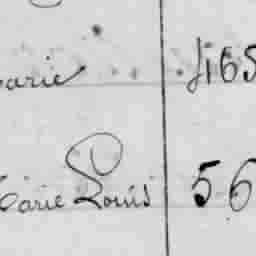 arie 165
Marie Louis 56